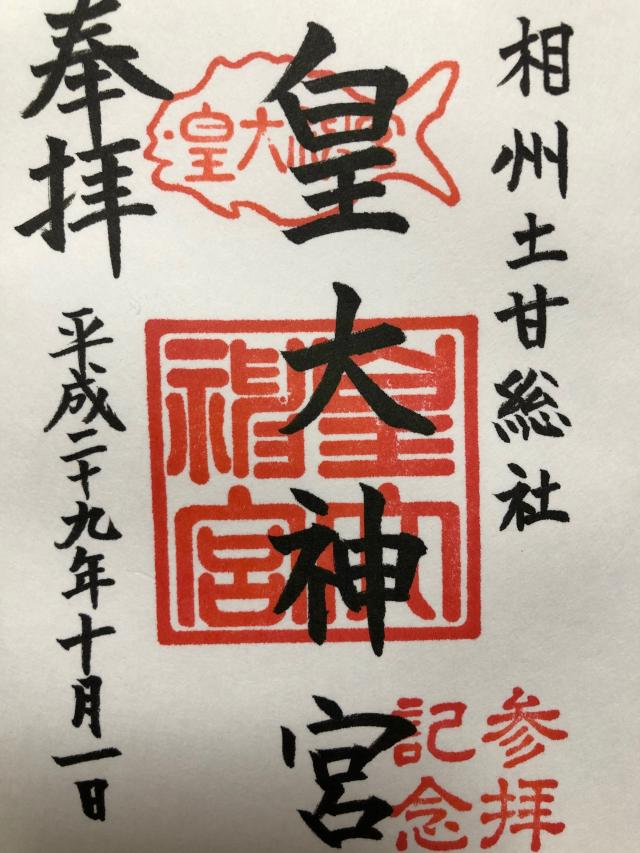 相州土甘総社
皇大神宮
皇大神宮
皇大神宮
参拝
記念
奉拝
平成二十九年十月一日